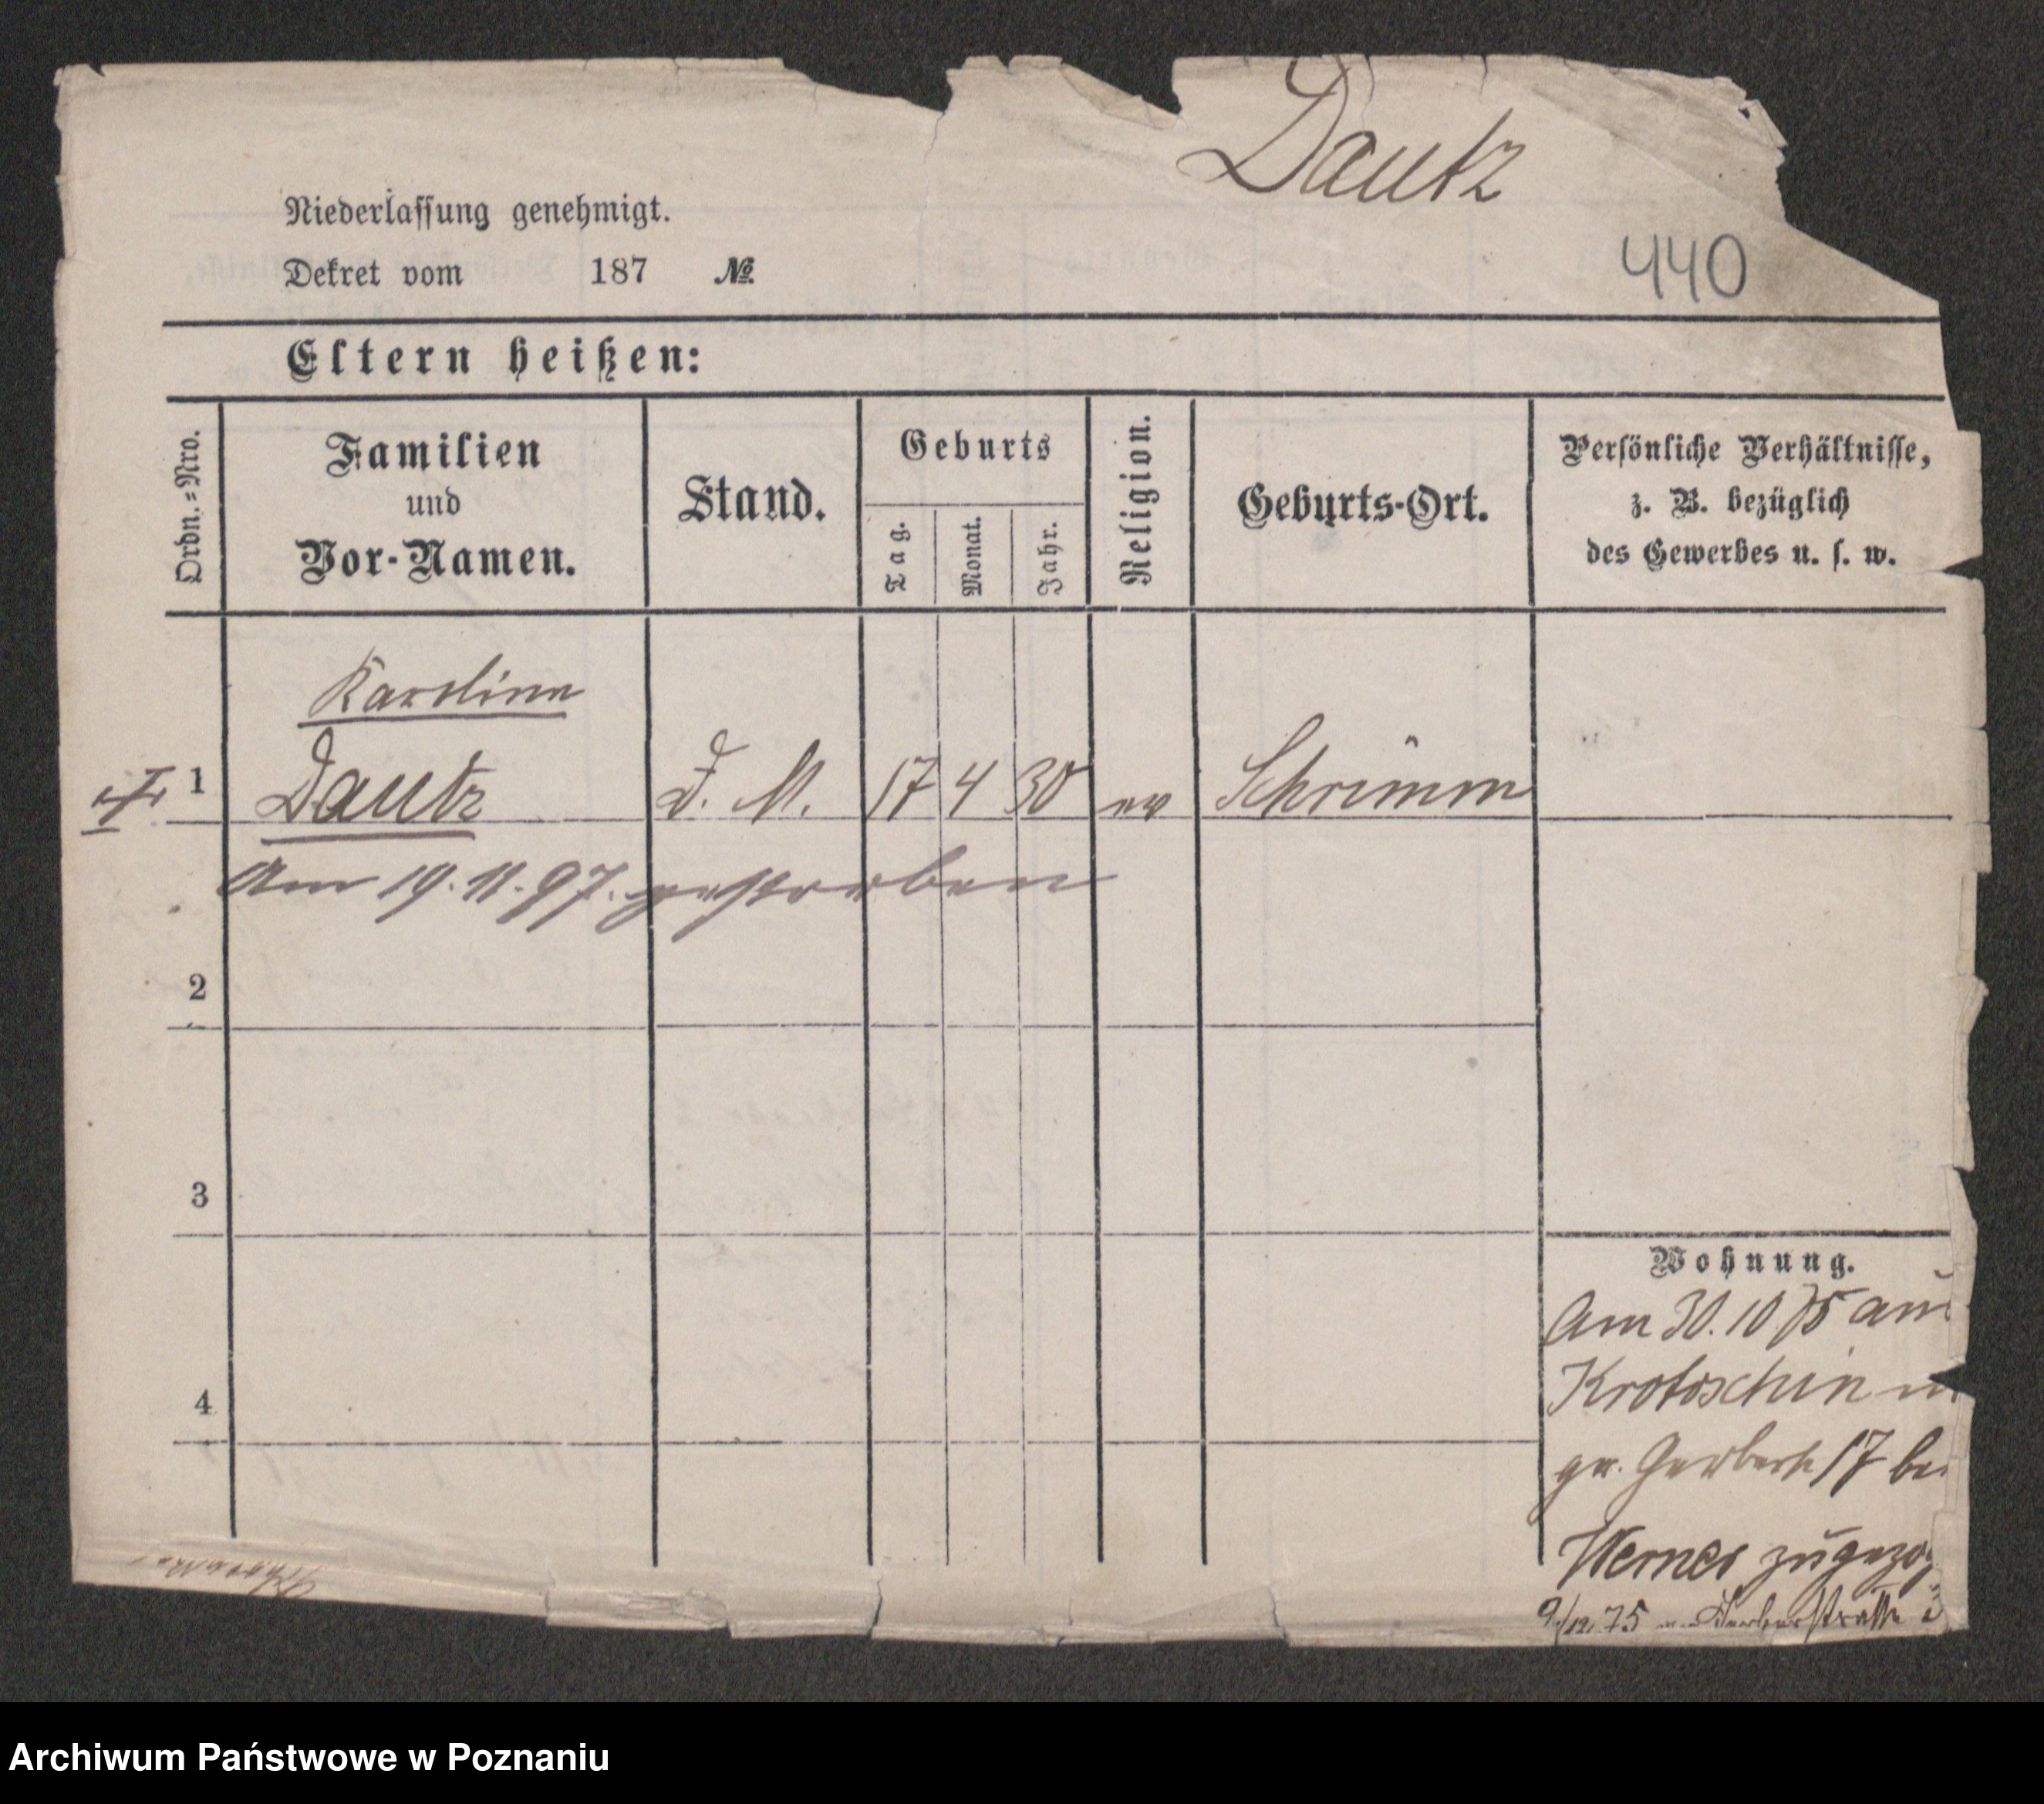 Dautz
Niederlassung genehmigt.
440
Dekret vom 187 №
Eltern heißen:
Ordn.=Nro.
Familien
und
Vor-Namen.
Stand.
Geburts
Tag.
Monat.
Jahr.
Religion.
Geburts-Ort.
Persönliche Verhältnisse,
z. B. bezüglich
des Gewerbes u. s. w.
Karoline
1 Dautz D. M. 17 4 30 ev Schrimm
Am 19.11.97. gestorben
2
3
4
Wohnung.
Am 30.10 75 aus
Krotoschin n
gr. Gerberst 17 bei
Werner zugezog
9/12.75 Gerberstrasse
Archiwum Państwowe w Poznaniu